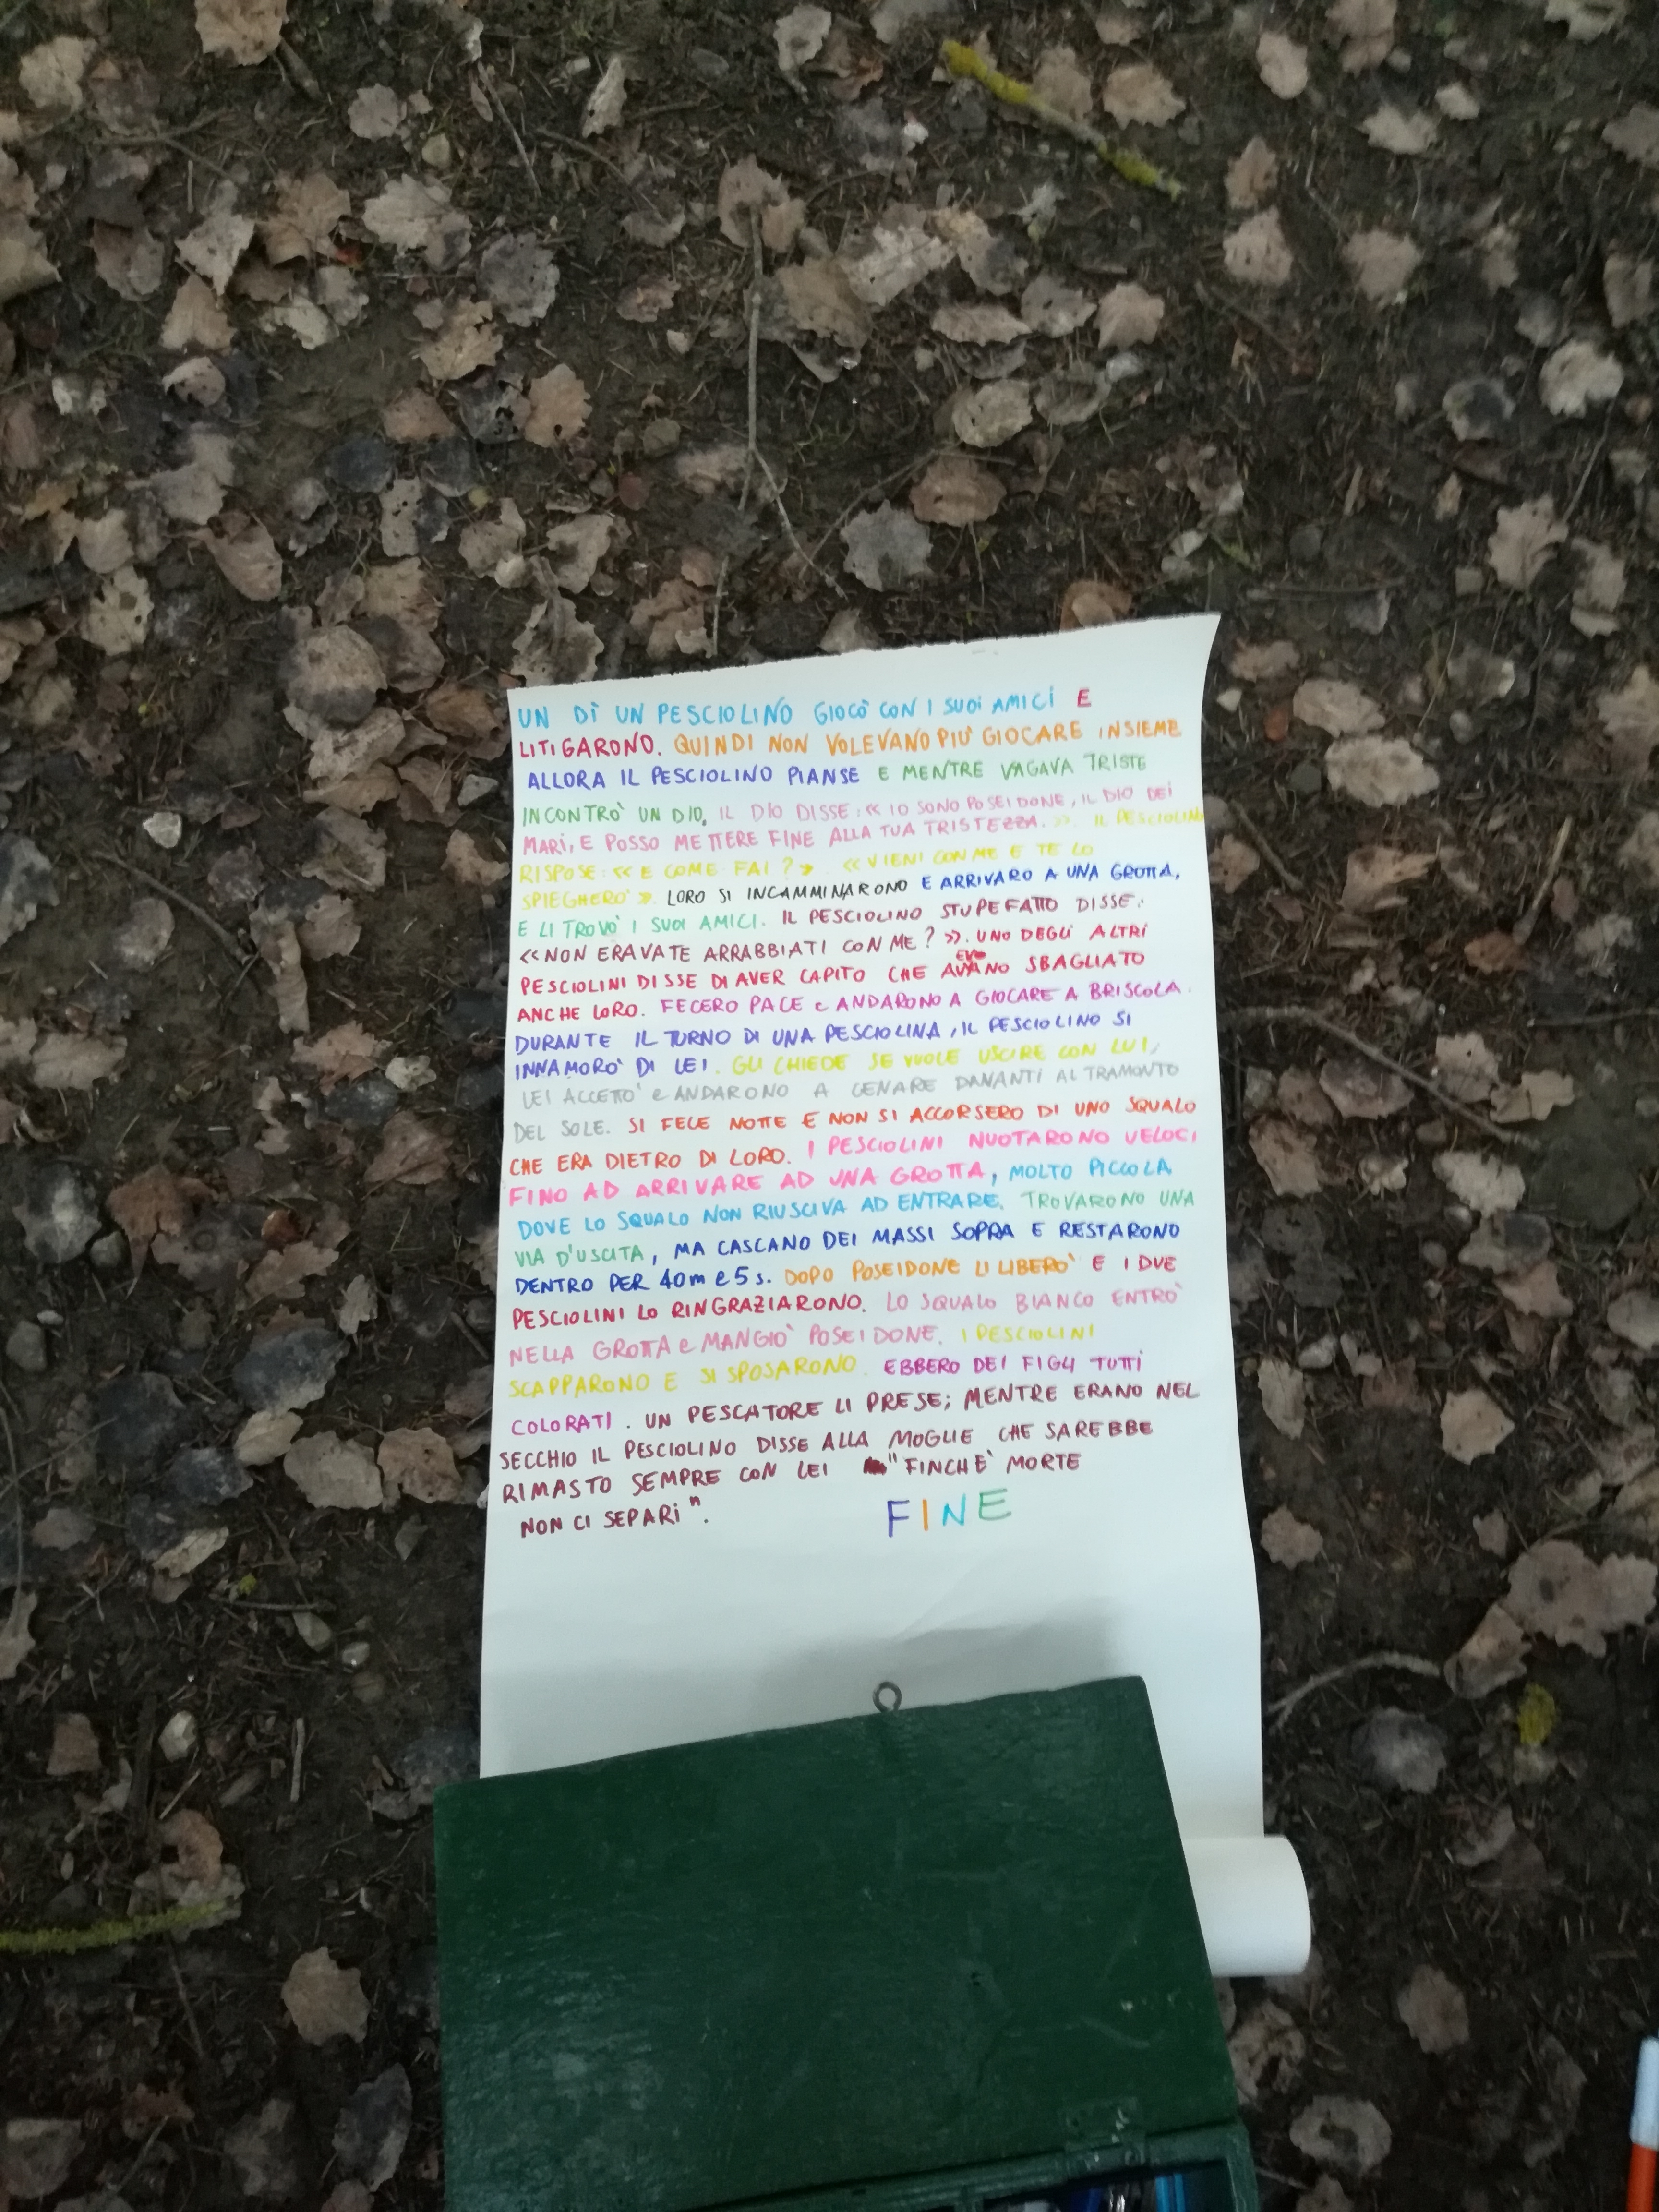 UN DÌ UN PESCIOLINO GIOCÒ CON I SUOI AMICI E
LITIGARONO. QUINDI NON VOLEVANO PIÙ GIOCARE INSIEME
ALLORA IL PESCIOLINO PIANSE E MENTRE VAGAVA TRISTE
INCONTRÒ UN DIO. IL DIO DISSE: «IO SONO POSEIDONE, IL DIO DEI
MARI, E POSSO METTERE FINE ALLA TUA TRISTEZZA.». IL PESCIOLINO
RISPOSE: «E COME FAI?». «VIENI CON ME E TE LO
SPIEGHERÒ». LORO SI INCAMMINARONO E ARRIVARO A UNA GROTTA,
E LI TROVÒ I SUOI AMICI. IL PESCIOLINO STUPEFATTO DISSE:
«NON ERAVATE ARRABBIATI CON ME?». UNO DEGLI ALTRI
PESCIOLINI DISSE DI AVER CAPITO CHE AVEVANO SBAGLIATO
ANCHE LORO. FECERO PACE e ANDARONO A GIOCARE A BRISCOLA.
DURANTE IL TURNO DI UNA PESCIOLINA, IL PESCIOLINO SI
INNAMORÒ DI LEI. GLI CHIEDE SE VUOLE USCIRE CON LUI,
LEI ACCETTÒ e ANDARONO A CENARE DAVANTI AL TRAMONTO
DEL SOLE. SI FECE NOTTE E NON SI ACCORSERO DI UNO SQUALO
CHE ERA DIETRO DI LORO. I PESCIOLINI NUOTARONO VELOCI
FINO AD ARRIVARE AD UNA GROTTA, MOLTO PICCOLA
DOVE LO SQUALO NON RIUSCIVA AD ENTRARE. TROVARONO UNA
VIA D'USCITA, MA CASCANO DEI MASSI SOPRA E RESTARONO
DENTRO PER 40m e 5s. DOPO POSEIDONE LI LIBERÒ E I DUE
PESCIOLINI LO RINGRAZIARONO. LO SQUALO BIANCO ENTRÒ
NELLA GROTTA e MANGIÒ POSEIDONE. I PESCIOLINI
SCAPPARONO E SI SPOSARONO. EBBERO DEI FIGLI TUTTI
COLORATI. UN PESCATORE LI PRESE; MENTRE ERANO NEL
SECCHIO IL PESCIOLINO DISSE ALLA MOGLIE CHE SAREBBE
RIMASTO SEMPRE CON LEI "FINCHÈ MORTE
NON CI SEPARI".
FINE